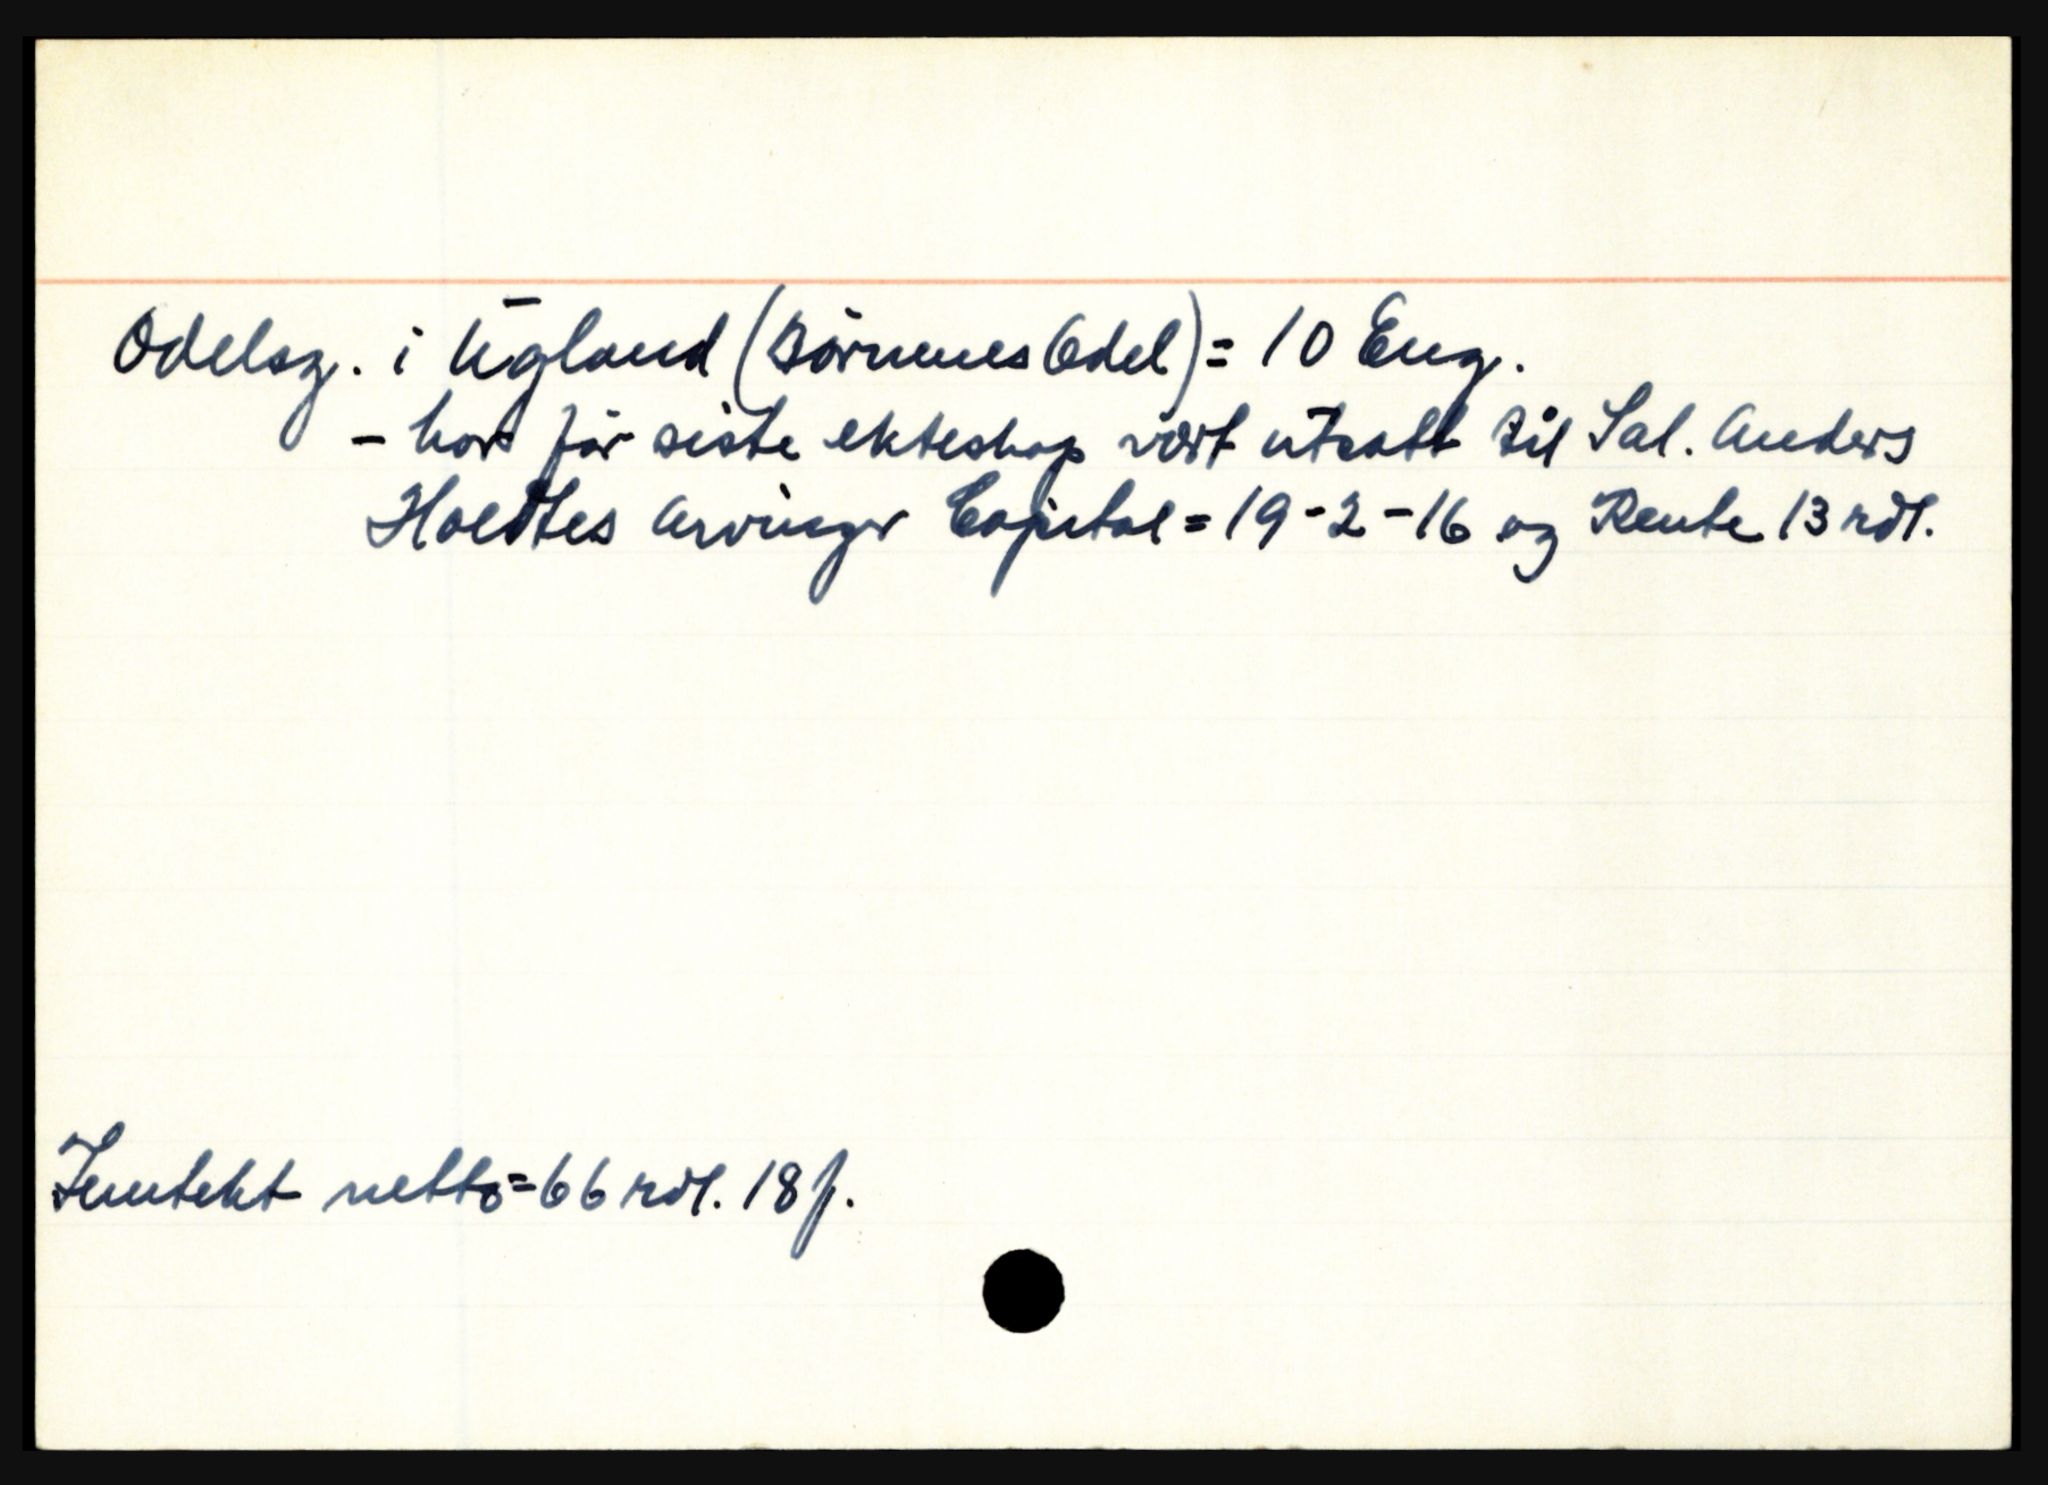 Odelsg. i Ugland (Børnenes Odel) = 10 Eng.
- har før siste ekteskap vert utsatt til Sal. Anders
Holdtes Arvinger Capital = 19-2-16 og Rente 13 rdl.
Inntekt netto = 66 rdl. 18 f.